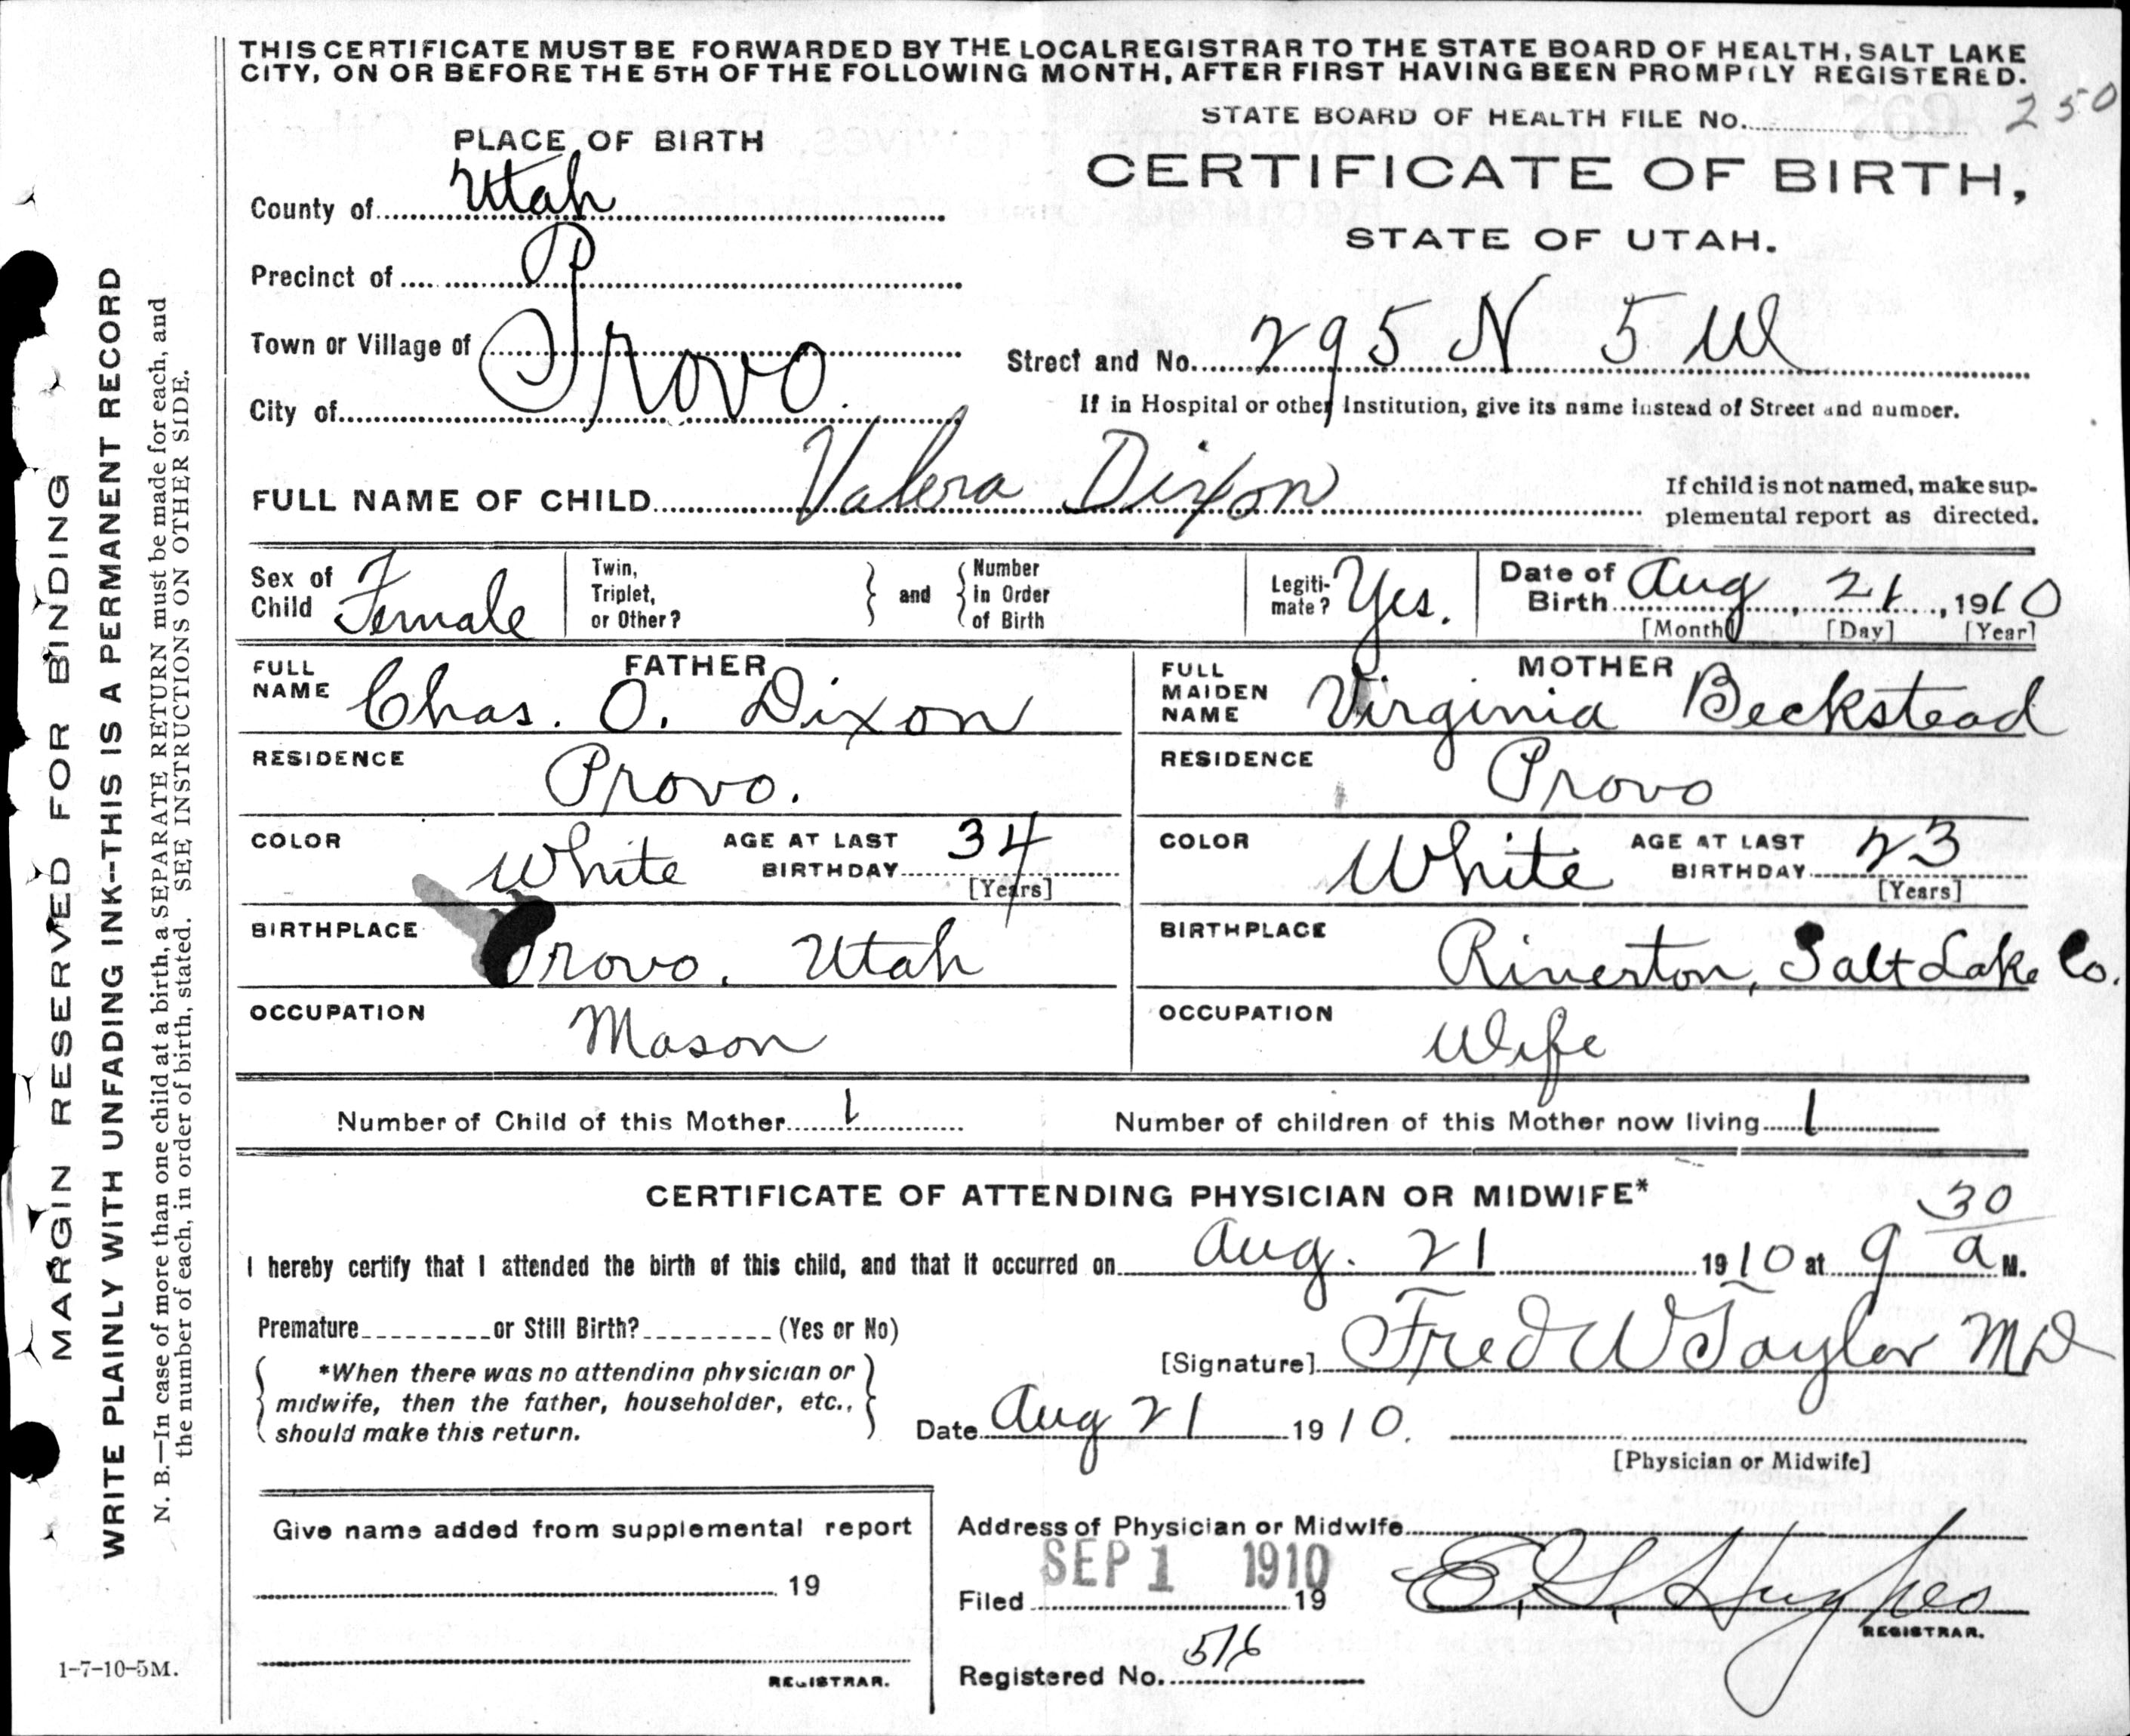 THIS CERTIFICATE MUST BE FORWARDED BY THE LOCAL REGISTRAR TO THE STATE BOARD OF HEALTH, SALT LAKE
CITY, ON OR BEFORE THE 5TH OF THE FOLLOWING MONTH, AFTER FIRST HAVING BEEN PROMPTLY REGISTERED.
STATE BOARD OF HEALTH FILE No. 250
PLACE OF BIRTH
CERTIFICATE OF BIRTH,
STATE OF UTAH.
County of Utah
Precinct of
Town or Village of Provo.
City of
Street and No. 295 N 5 W
If in Hospital or other Institution, give its name instead of Street and number.
FULL NAME OF CHILD Valera Dixon
If child is not named, make sup-
plemental report as directed.
Sex of Child Female
Twin, Triplet, or Other? } and { Number in Order of Birth
Legiti-mate? Yes.
Date of Birth Aug 21, 1910
[Month] [Day] [Year]
FATHER
FULL NAME Chas. O. Dixon
RESIDENCE Provo.
COLOR White AGE AT LAST BIRTHDAY 34 [Years]
BIRTHPLACE Provo. Utah
OCCUPATION Mason
MOTHER
FULL MAIDEN NAME Virginia Beckstead
RESIDENCE Provo
COLOR White AGE AT LAST BIRTHDAY 23 [Years]
BIRTHPLACE Riverton, Salt Lake Co.
OCCUPATION Wife
Number of Child of this Mother 1 Number of children of this Mother now living 1
CERTIFICATE OF ATTENDING PHYSICIAN OR MIDWIFE*
I hereby certify that I attended the birth of this child, and that it occurred on Aug. 21 1910 at 9 30 a M.
Premature or Still Birth? (Yes or No)
[Signature] Fred W Taylor MD
*When there was no attending physician or
midwife, then the father, householder, etc.,
should make this return.
Date Aug 21 1910.
[Physician or Midwife]
Give name added from supplemental report
19
REGISTRAR.
Address of Physician or Midwife
SEP 1 1910
Filed 19 E. G. Hughes
REGISTRAR.
Registered No. 516
MARGIN RESERVED FOR BINDING
WRITE PLAINLY WITH UNFADING INK--THIS IS A PERMANENT RECORD
N. B.—In case of more than one child at a birth, a SEPARATE RETURN must be made for each, and
the number of each, in order of birth, stated. SEE INSTRUCTIONS ON OTHER SIDE.
1-7-10-5M.